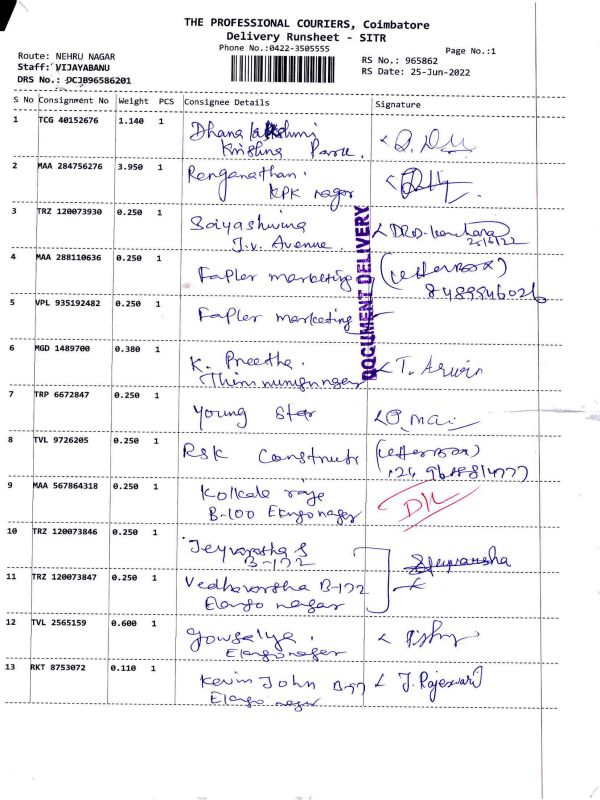 THE PROFESSIONAL COURIERS, Coimbatore
Delivery Runsheet - SITR
Phone No.:0422-3505555
Page No.:1
Route: NEHRU NAGAR
Staff: VIJAYABANU
DRS No.: DCJB96586201
RS No.: 965862
RS Date: 25-Jun-2022
S No Consignment No Weight PCS Consignee Details Signature
1 TCG 40152676 1.140 1 Dhanalakshmi
Krishna
2 MAA 284756276 3.950 1 Renganathan.
KPK nagar
3 TRZ 120073930 0.250 1
J.V. Avenue.
25/6/22
DOCUMENT DELIVERY
4 MAA 288110636 0.250 1 Fapler marketing (Letter Box)
8489946026
5 VPL 935192482 0.250 1 Fapler marketing
6 MGD 1489700 0.380 1 K. Preetha. T. Arwin
7 TRP 6672847 0.250 1 Young Star
8 TVL 9726205 0.250 1 RSK Constructi (Letter Box)
9 MAA 567864318 0.250 1
B-100 Elango nagar D/L
10 TRZ 120073846 0.250 1 Jeyvarsha S
B-172
11 TRZ 120073847 0.250 1 Vedhavarsha B-172
Elango nagar
12 TVL 2565159 0.600 1 Gowsalya.
Elango nagar
13 RKT 8753072 0.110 1 Kevin John B-97 J. Rajeswari
Elango nagar